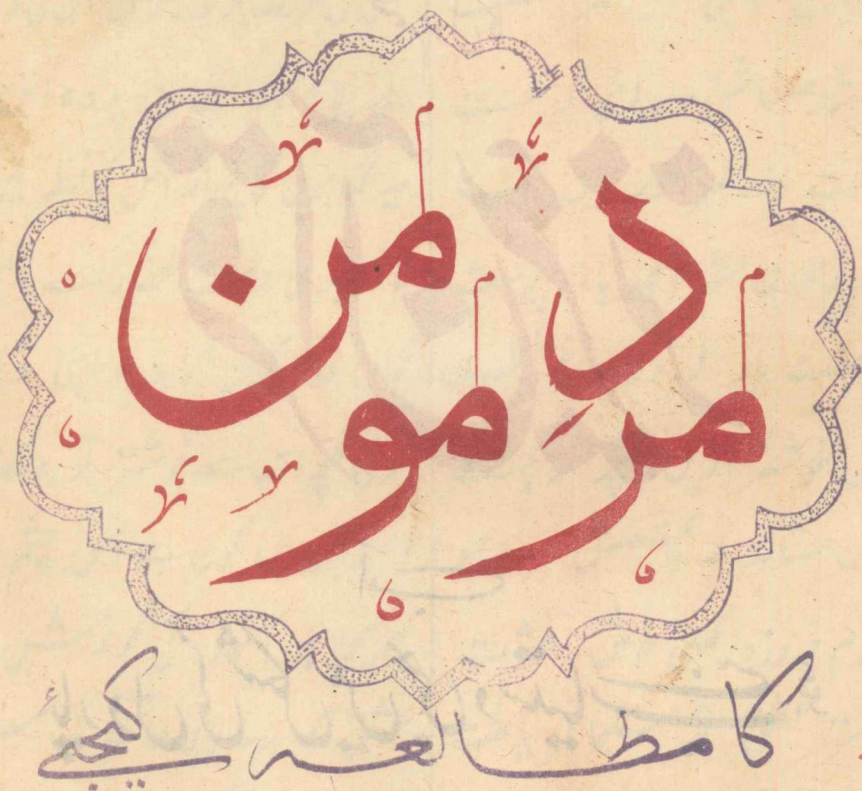 مردِ مومن
کا مطالعہ کیجئے